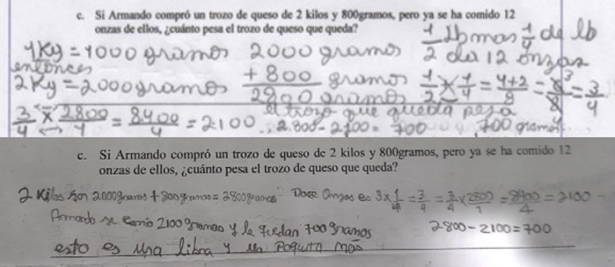 c. Si Armando compró un trozo de queso de 2 kilos y 800gramos, pero ya se ha comido 12
onzas de ellos, ¿cuánto pesa el trozo de queso que queda?
1/2 lb mas 1/4 de lb
1Kg = 1000 gramos 2000 gramos
da 12 onzas
entonces
2Kg = 2000 gramos + 800 gramos 1/2 x 1/4 = 4+2/8 = 6/8 = 3/4
2800 gramos
3/4 x 2800/1 = 8400/4 = 2.100 .. 2.800 - 2100 = 700
el trozo que queda pesa
700 gramos
c. Si Armando compró un trozo de queso de 2 kilos y 800gramos, pero ya se ha comido 12
onzas de ellos, ¿cuánto pesa el trozo de queso que queda?
2 Kilos son 2000gramos + 800 gramos = 2800gramos Doce Onzas es 3 x 1/4 = 3/4 = 3/4 x 2800/1 = 8400/4 = 2100 -
Armando se comio 2100 gramos y le quedan 700 gramos 2.800 - 2100 = 700
esto es una libra y un poquito mas